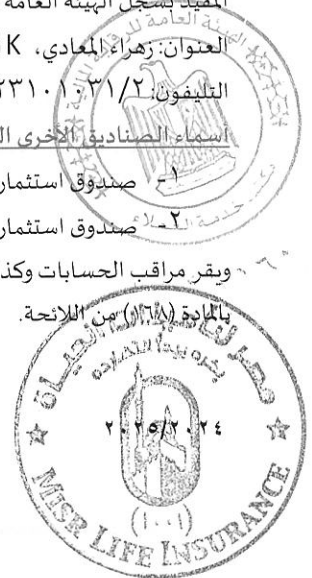 المقيد بسجل الهيئة العامة
العنوان: زهراء المعادي، K
التليفون: ٢٣١٠١٠٣١/٢
أسماء الصناديق الأخرى
١- صندوق استثمار
٢- صندوق استثمار
ويقر مراقب الحسابات وكذ
بالمادة (١٦٨) من اللائحة.
الهيئة العامة
خدمة
مصر لتأمينات الحياة
٢٠٢٥/٢٠٢٤
(١٠٠١)
MISR LIFE INSURANCE